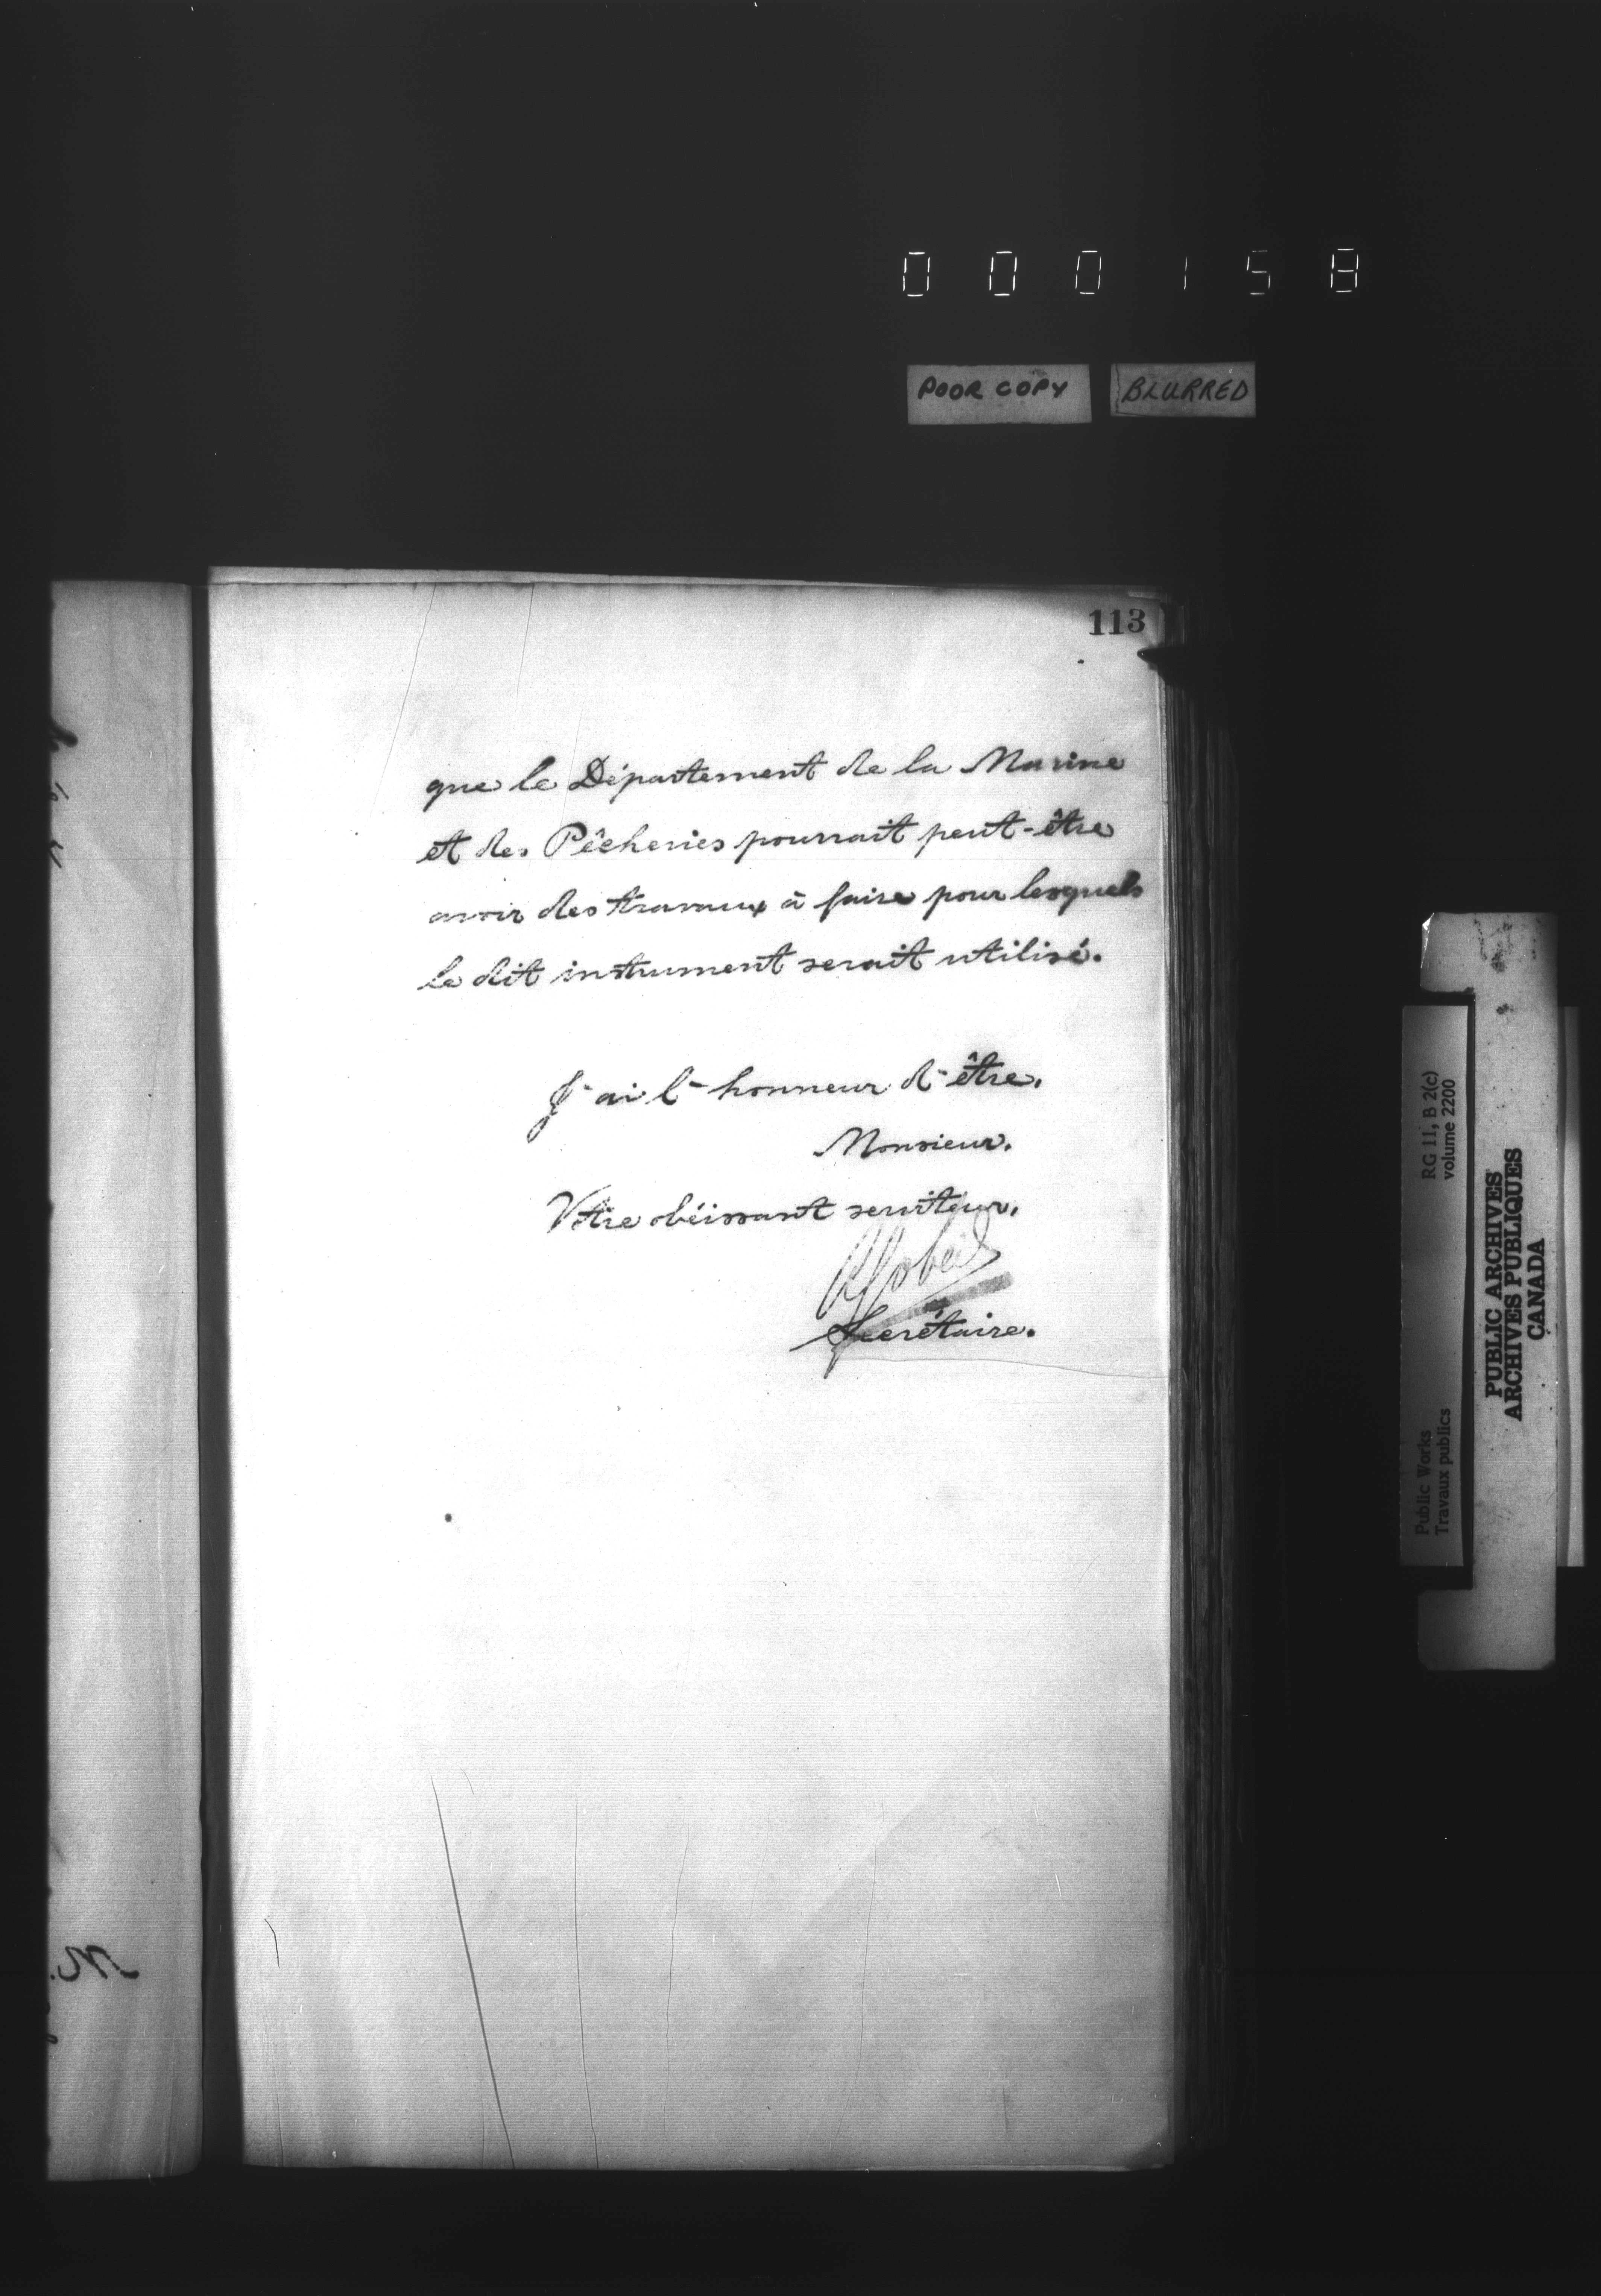 000158
POOR COPY BLURRED
113
que le Département de la Marine
et des Pêcheries pourrait peut-être
avoir des travaux à faire pour lesquels
le dit instrument serait utilisé.
J'ai l'honneur d'être.
Monsieur.
Votre obéissant serviteur.
AGobeil
Secrétaire.
RG 11, B 2(c)
volume 2200
Public Works
Travaux publics
PUBLIC ARCHIVES
ARCHIVES PUBLIQUES
CANADA